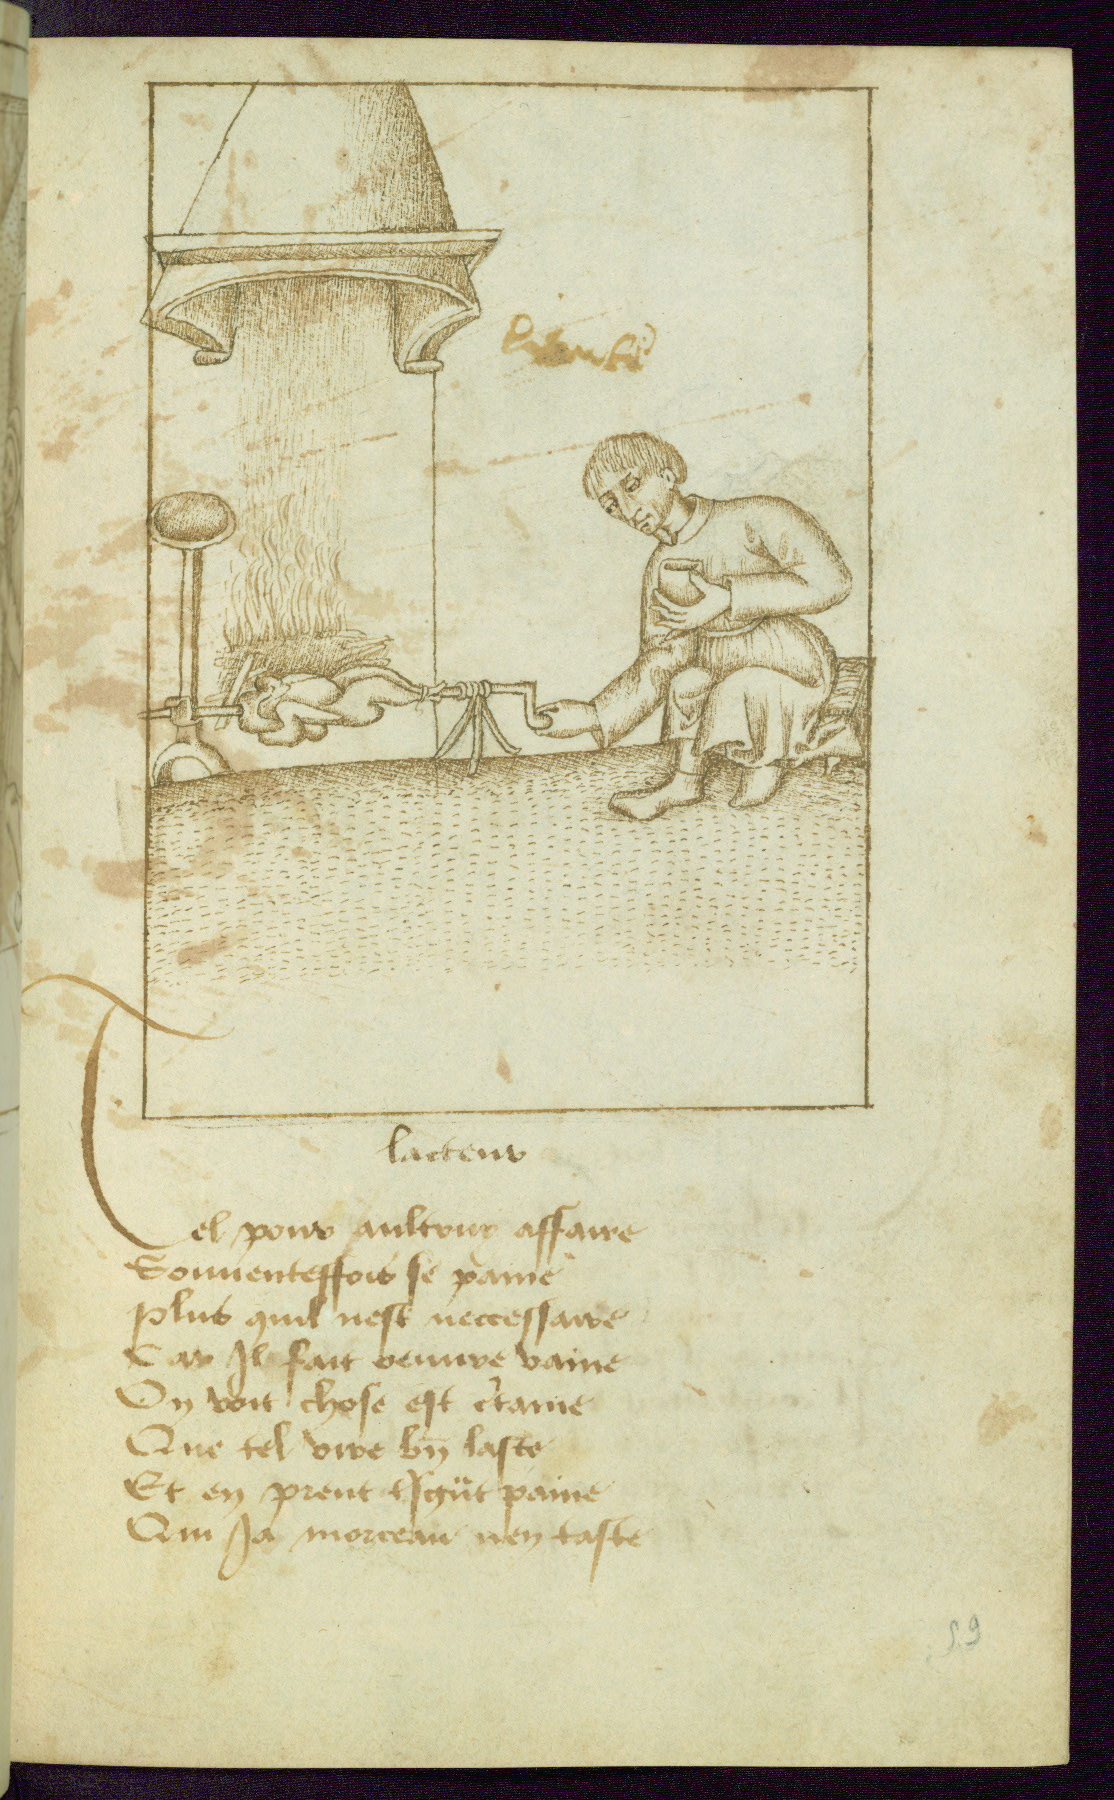 lacteur
Tel pour aultruy affaire
Souventeffois se paine
Plus quil nest neccessaire
Car Il fait oeuure vaine
On voit chose est c̄taine
Que tel vire bn̄ laste
Et en prent
paine
Qui Ja morceau nen taste
59